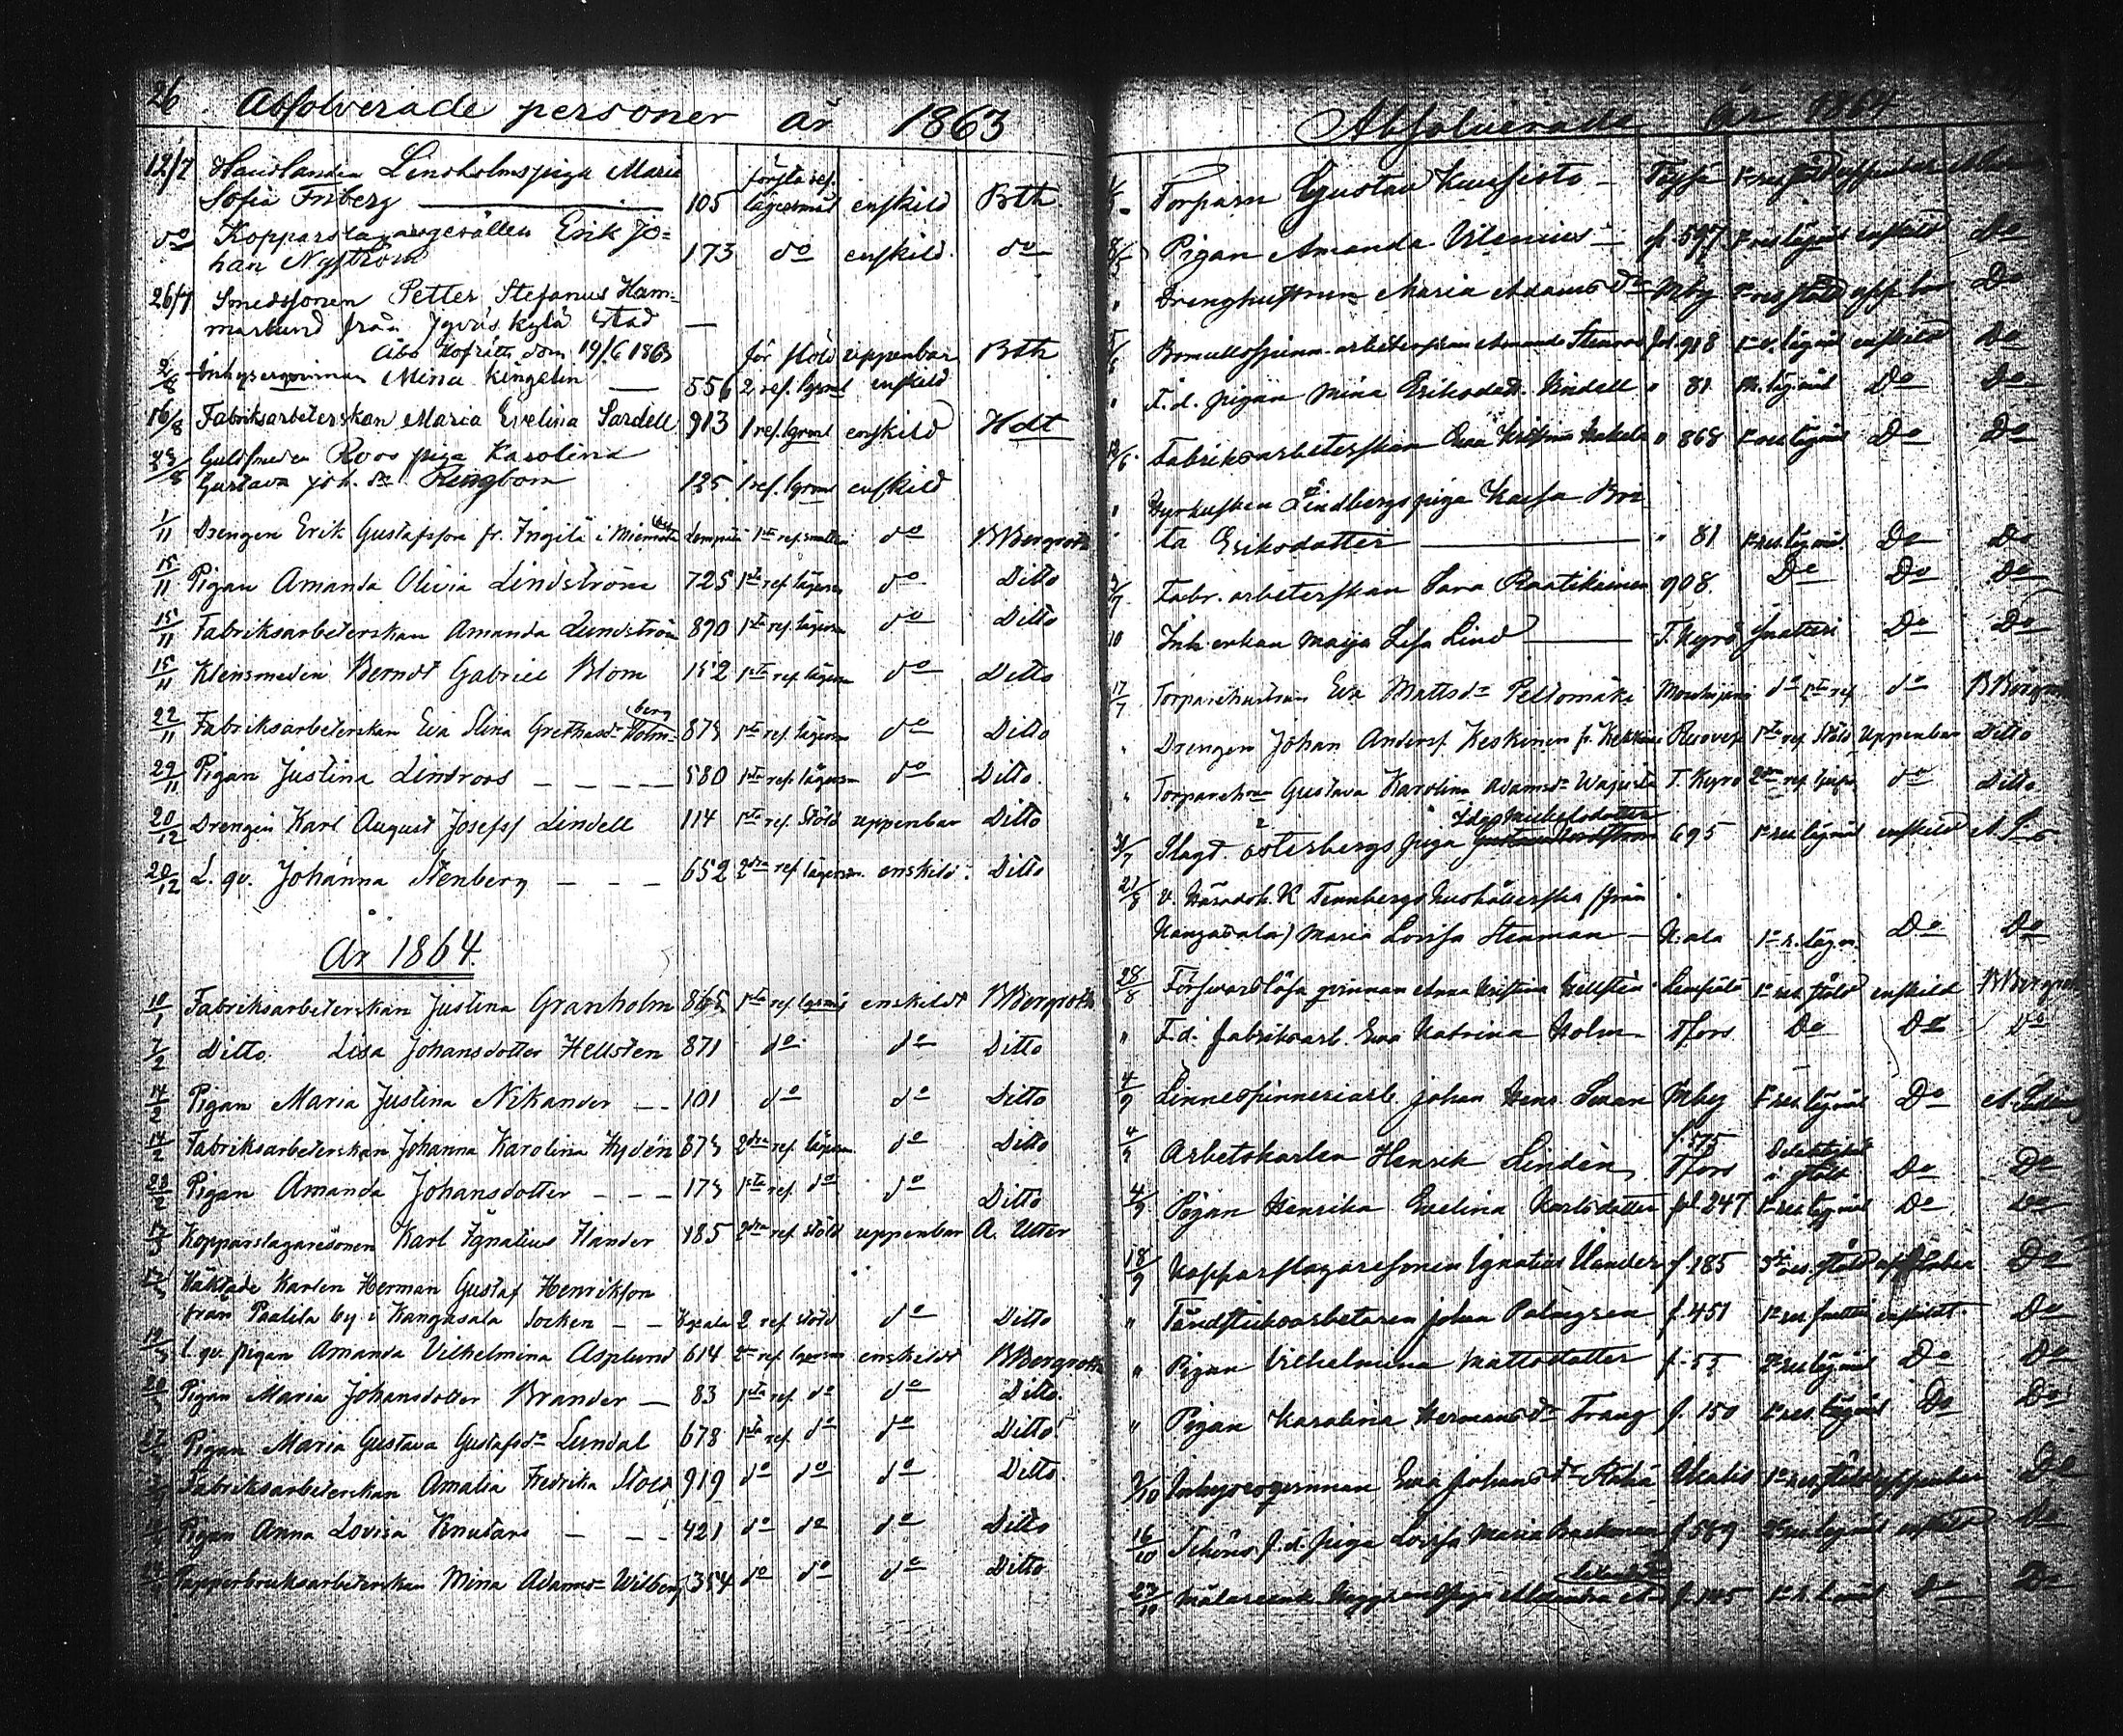 26 Absolverade personer år 1863
12/7 Handlanden Lindholms piga Maria första ref.
Sofia Friberg 105 lägersmål enskild Bth
do Kopparslagaregesällen Erik Jo=
han Nyström 173 do enskild do
26/7 Smedssonen Petter Stefanus Ham=
marlund från Jyväskylä stad —
Åbo Hofrätts dom 19/6 1863 för stöld uppenbar Bth
2/8 Inhysesqvinnan Mina Kengelin — 556 2 ref. lgsml enskild
16/8 Fabriksarbeterskan Maria Evelina Sardell 913 1 ref. lgsml enskild Hdt
Guldsmeden Roos piga Karolina
Gustava Joh. dr Ringbom 125 1 ref. lgsml enskild
1/11 Drengen Erik Gustafsson fr. Ingilä i Lempälä 1sta ref. do B Bergroth
15/11 Pigan Amanda Olivia Lindström 725 1sta ref. lägersm do Ditto
15/11 Fabriksarbeterskan Amanda Lundström 890 1sta ref. lägersm do Ditto
15/11 Klensmeden Berndt Gabriel Blom 152 1sta ref. lägersm do Ditto
22/11 Fabriksarbeterskan Eva Stina Grethasdr Holm= berg 873 1sta ref. lägersm do Ditto
29/11 Pigan Justina Lindroos — — — — 580 1sta ref. lägersm do Ditto.
20/12 Drengen Karl August Josefsf Lindell 114 1sta ref. Stöld uppenbar Ditto
20/12 L. qv. Johanna Stenberg — — — 652 2dra ref lägersm. enskild. Ditto
År 1864.
10/1 Fabriksarbeterskan Justina Granholm 865 1sta ref. lgsmål enskildt B Bergroth
7/2 Ditto Lisa Johansdotter Hellsten 871 do do Ditto
14/2 Pigan Maria Justina Nikander — — 101 do do Ditto
14/2 Fabriksarbeterskan Johanna Karolina Hydén 873 2dra ref. lägersm. do Ditto
Pigan Amanda Johansdotter — — — 173 1sta ref. do do Ditto
Kopparslagaresonen Karl Ignatius Ilander 185 2dra ref. stöld uppenbar A. Utter
Häktade Karlen Herman Gustaf Henriksson
från Paalila by i Kangasala Socken — — Kgsala 2 ref. stöld do Ditto
L. qv. pigan Amanda Vilhelmina Asplund 614 2 ref. lägersm enskildt B Bergroth
Pigan Maria Johansdotter Brander — 83 1sta ref. do do Ditto.
Pigan Maria Gustava Gustafsdr Lundal 678 1sta ref. do do Ditto
Fabriksarbeterskan Amalia Fredrika 919 do do do Ditto
Pigan Anna Lovisa Knutars — — — 421 do do do Ditto
Papperbruksarbeterskan Mina Adamsdr Wilberg 354 do do do Ditto
Absolverade år 1864
Torparn Gustaf Kuusisto —
Pigan Amanda Vilenius — f. 597 1 res lägml enskild Do
Drenghustrun Maria Adamsdr Mby Do
Bomullsspinn. arbeterskan Amanda fol. 918 lägmål enskild Do
F. d. pigan Mina Eriksdott. Lindell " 81 Do Do
Fabriksarbeterskan " 868 1 res lägmål Do Do
Hyrkusken Lindbergs piga Kajsa Bri
ta Eriksdotter — " 81 1 res. lägmål Do Do
Fabr. arbeterskan Sara Raatikainen 908. Do Do Do
Inh. enkan Maja Lisa Lind — T. Kyrö snatteri Do Do
17/7 Torparehustrun Eva Mattsdr Peltomäki do 1sta ref do
" Drengen Johan Andersf. Keskinen fr. Ruovesi 1sta ref. Stöld uppenbar Ditto
" Gustava Karolina Adamsdr T. Kyro 2dra ref. do Ditto
Slagt. Österbergs piga Michelsdotter 695 1 res lägmål enskild
21/8 v. Häradsh. K Tennbergs hushållerska (från
Kangasala) Maria Lovisa Stenman — K:ala 1 r. läg.m. Do Do
28/8 Försvarslösa qvinnan Anna Kristina Hellsten Lempälä 1 res stöld enskild B Bergroth
" F.d. fabriksarb. Eva Katrina Holm Tfors Do Do Do
4/9 Linnespinneriarb. Johan Henr. Svan Mby 1 res. lägmål Do
4/9 Arbetskarlen Henrik Lindén f. 575 Tfors Delaktighet i stöld Do Do
4/9 Pigan Henrika Evelina Karlsdotter fol. 247 1 res lägmål Do Do
18/9 Kopparslagaresonen Ignatius Ilander f. 185 3 res. stöld uppenbar Do
" Tändsticksarbetaren Johan Palmgren f. 451 1 res snatteri enskildt Do
" Pigan Vilhelmina Mattsdotter f. 55 res lägmål Do Do
" Pigan Karolina Hermansdr Frang f. 150 1 res. lägmål Do Do
9/10 Inhysesqvinnan Eva Johansdr 1 res. stöld uppenbar Do
16/10 f. d. piga Lovisa Maria Backman f. 589 res lägmål enskild Do
23/10 Målareenk. piga Alexandra Do Do